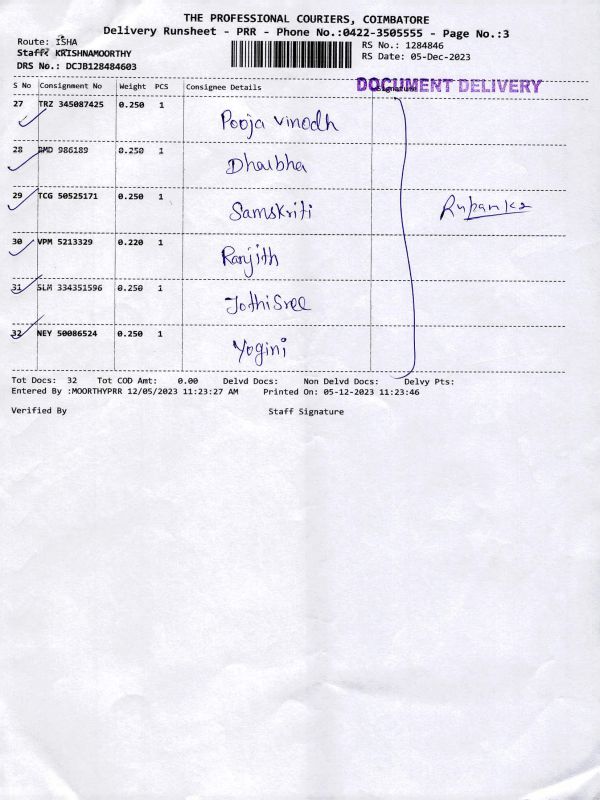 THE PROFESSIONAL COURIERS, COIMBATORE
Delivery Runsheet - PRR - Phone No.:0422-3505555 - Page No.:3
Route: ISHA
Staff: KRISHNAMOORTHY
DRS No.: DCJB128484603
RS No.: 1284846
RS Date: 05-Dec-2023
DOCUMENT DELIVERY
S No Consignment No Weight PCS Consignee Details Signature
27 TRZ 345087425 0.250 1 Pooja vinodh
28 BMD 986189 0.250 1 Dhaibha
29 TCG 50525171 0.250 1 Samskriti
30 VPM 5213329 0.220 1 Ranjith
31 SLM 334351596 0.250 1 JothiSree
32 NEY 50086524 0.250 1 Yogini
Tot Docs: 32 Tot COD Amt: 0.00 Delvd Docs: Non Delvd Docs: Delvy Pts:
Entered By :MOORTHYPRR 12/05/2023 11:23:27 AM Printed On: 05-12-2023 11:23:46
Verified By Staff Signature